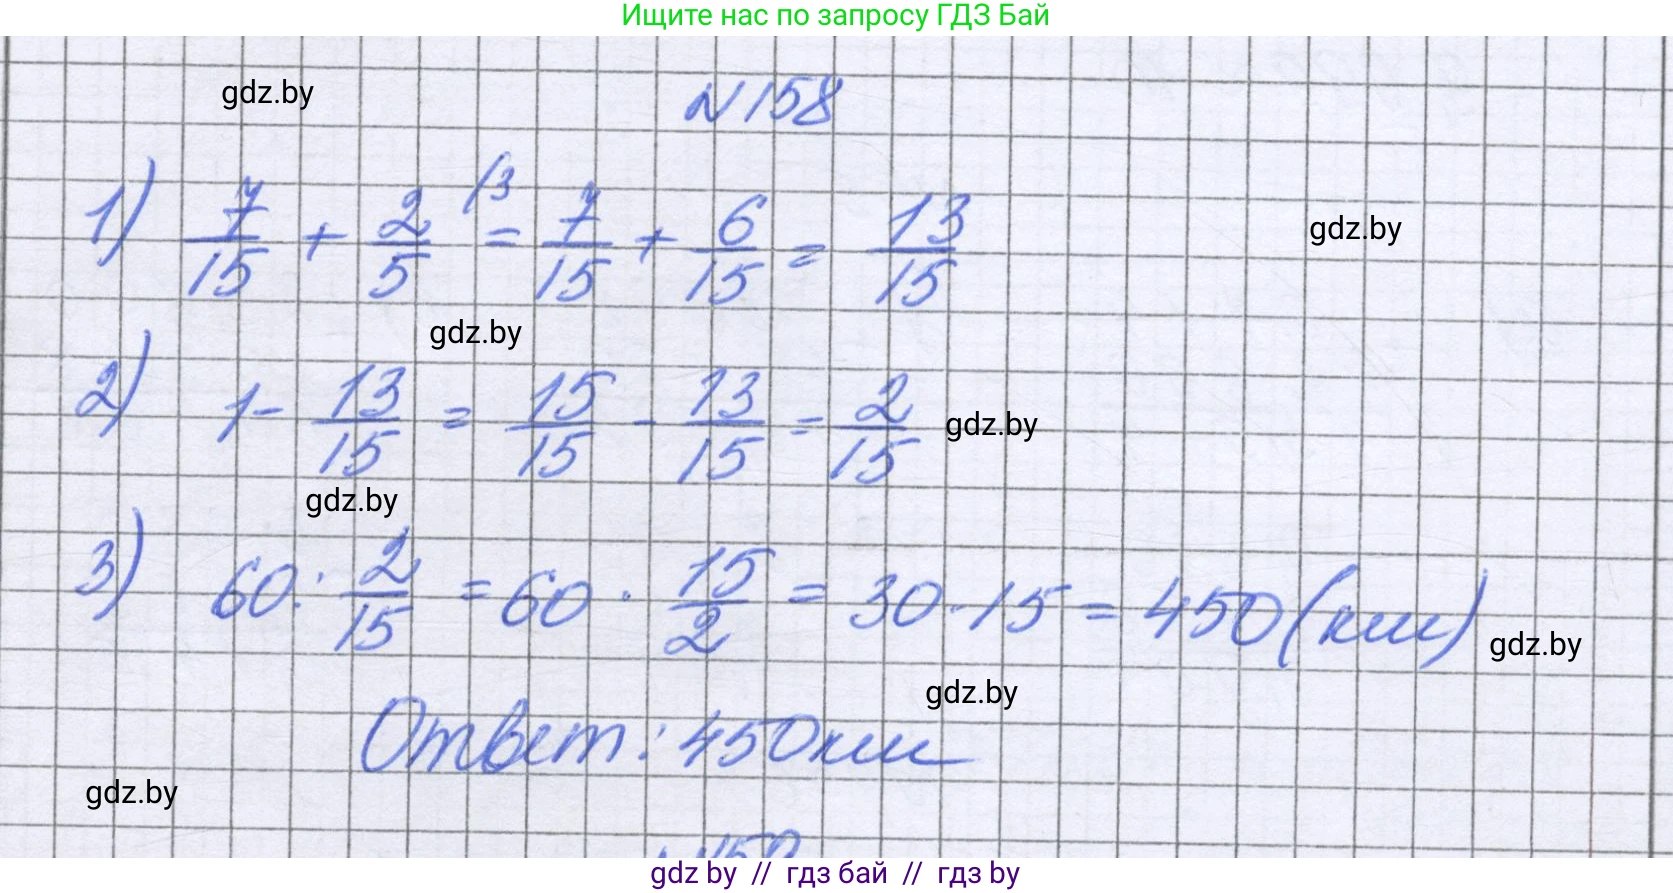 Ищите нас по запросу ГДЗ Бай
gdz.by
№158
1) 7/15 + 2/5 /3 = 7/15 + 6/15 = 13/15
gdz.by
gdz.by
2) 1 - 13/15 = 15/15 - 13/15 = 2/15
gdz.by
gdz.by
3) 60 : 2/15 = 60 · 15/2 = 30 · 15 = 450 (км)
gdz.by
gdz.by
Ответ: 450 км
gdz.by
gdz by // гдз бай // гдз by